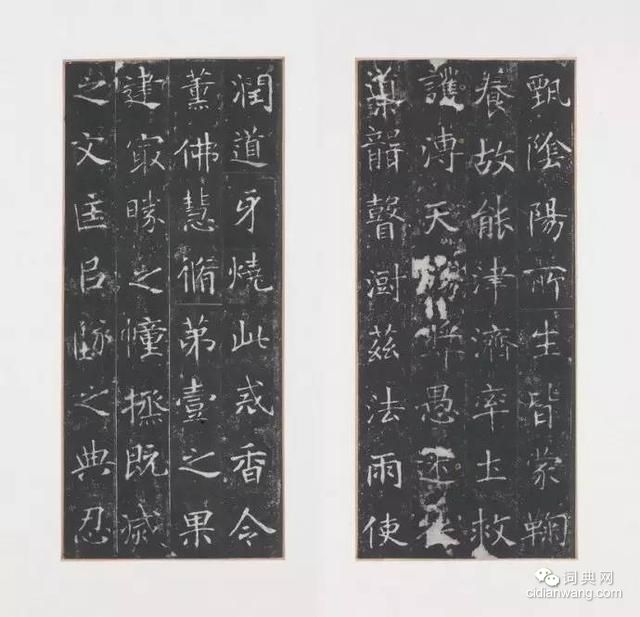 甄陰陽所生皆蒙鞠
養故能津濟率土救
護溥天將愚迷
導聾瞽澍茲法雨使
潤道牙燒此戒香令
薰佛慧脩第壹之果
建㝡勝之幢拯既滅
之文匡已墜之典忍
词典网
cidianwang.com